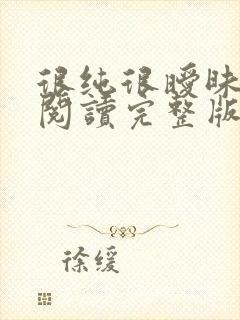 很纯很暧昧
阅读完整版
徐缓